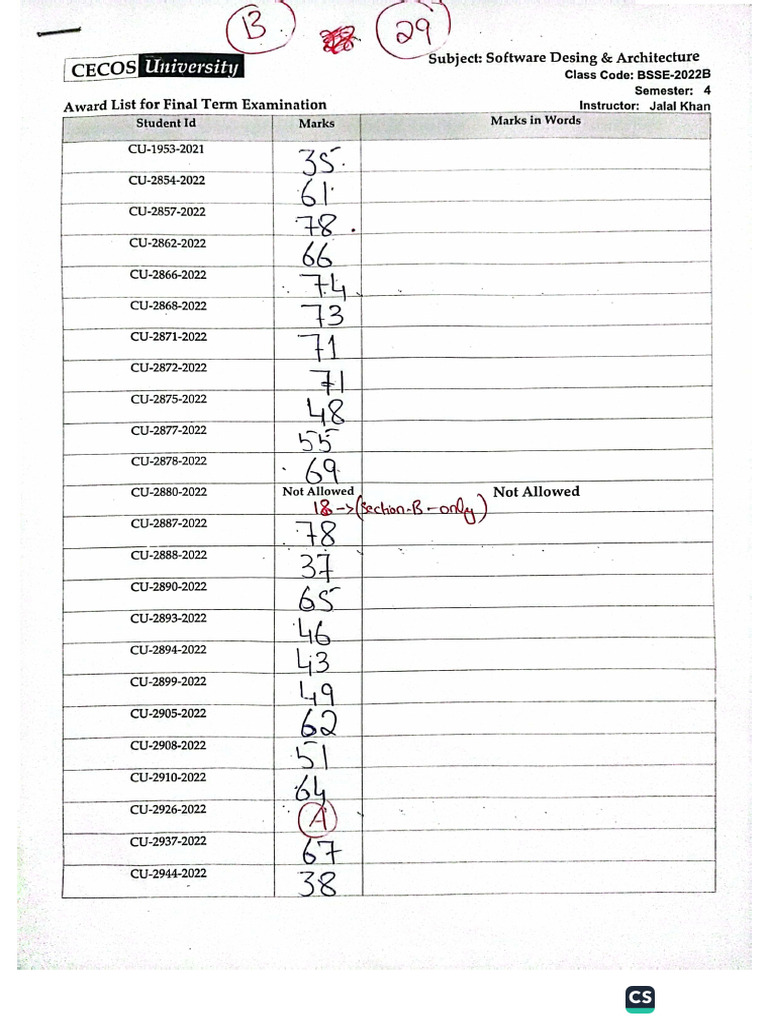 B 29
CECOS University
Subject: Software Desing & Architecture
Class Code: BSSE-2022B
Semester: 4
Award List for Final Term Examination
Instructor: Jalal Khan
Student Id Marks Marks in Words
CU-1953-2021 35
CU-2854-2022 61
CU-2857-2022 78
CU-2862-2022 66
CU-2866-2022 74
CU-2868-2022 73
CU-2871-2022 71
CU-2872-2022 71
CU-2875-2022 48
CU-2877-2022 55
CU-2878-2022 69
CU-2880-2022 Not Allowed Not Allowed
18 -> (section-B-only)
CU-2887-2022 78
CU-2888-2022 37
CU-2890-2022 65
CU-2893-2022 46
CU-2894-2022 43
CU-2899-2022 49
CU-2905-2022 62
CU-2908-2022 51
CU-2910-2022 64
CU-2926-2022 A
CU-2937-2022 67
CU-2944-2022 38
CS